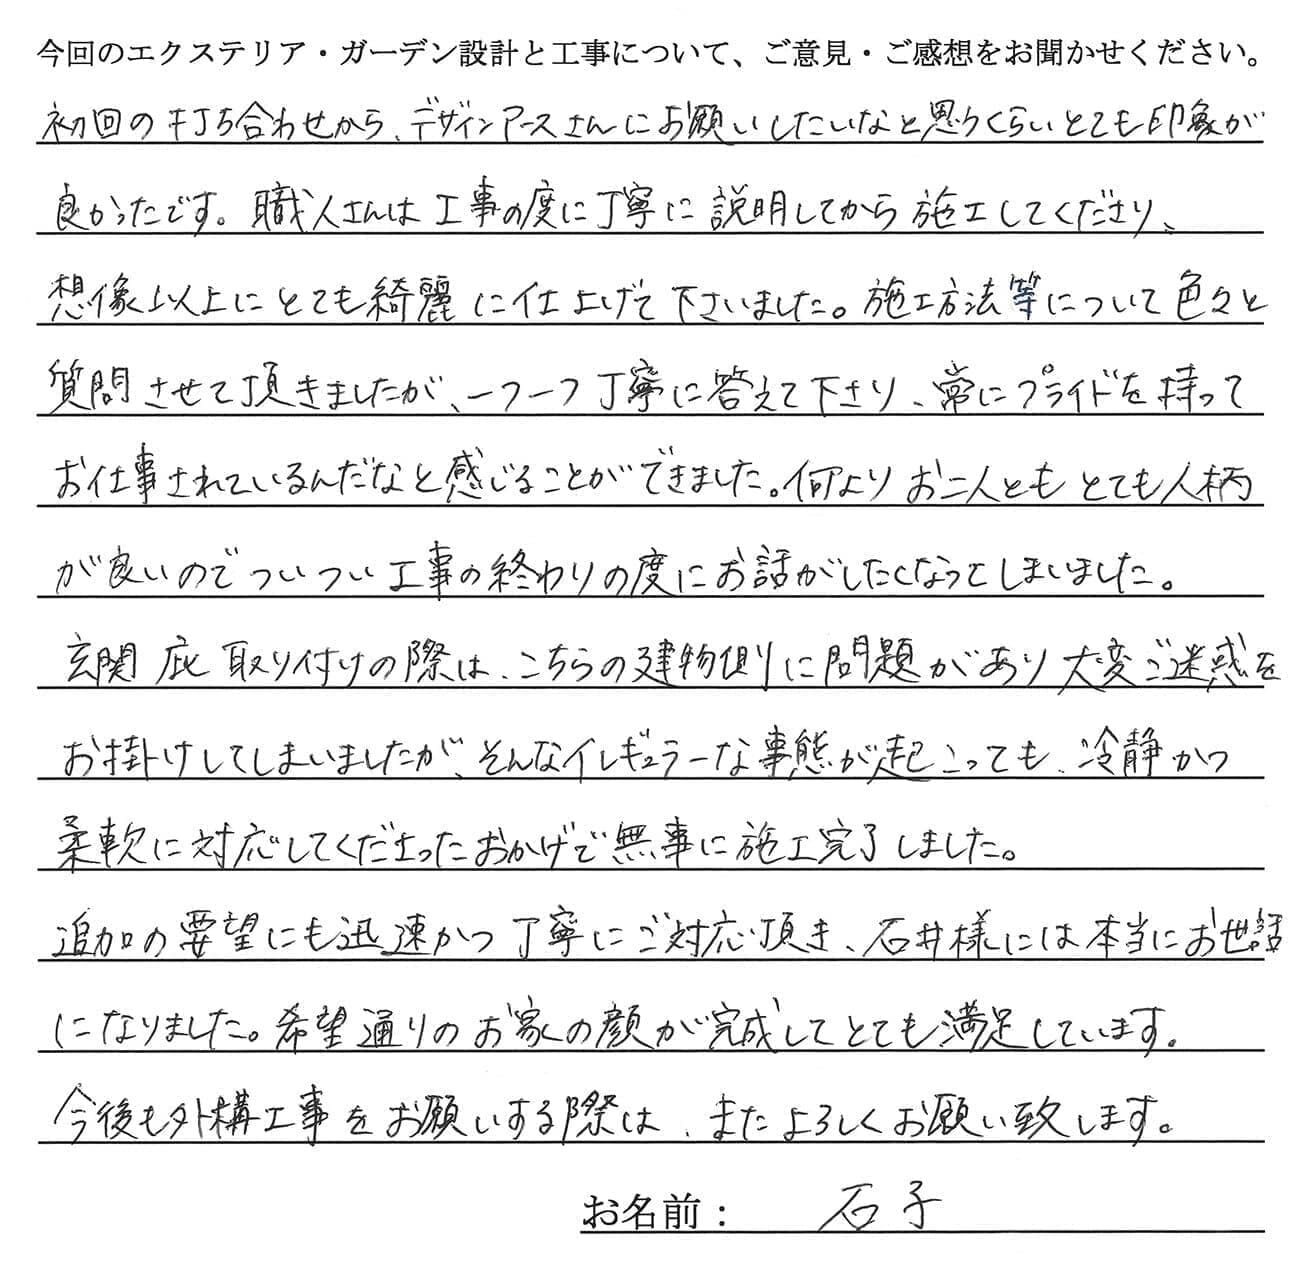 今回のエクステリア・ガーデン設計と工事について、ご意見・ご感想をお聞かせください。
初回の打ち合わせから、デザインアースさんにお願いしたいなと思うくらいとても印象が
良かったです。職人さんは工事の度に丁寧に説明してから施工してくださり、
想像以上にとても綺麗に仕上げて下さいました。施工方法等について色々と
質問させて頂きましたが、一つ一つ丁寧に答えて下さり、常にプライドを持って
お仕事されているんだなと感じることができました。何よりお二人ともとても人柄
が良いのでついつい工事の終わりの度にお話がしたくなってしまいました。
玄関庇取り付けの際は、こちらの建物側に問題があり大変ご迷惑を
お掛けしてしまいましたが、そんなイレギュラーな事態が起こっても、冷静かつ
柔軟に対応してくださったおかげで無事に施工完了しました。
追加の要望にも迅速かつ丁寧にご対応頂き、石井様には本当にお世話
になりました。希望通りのお家の顔が完成してとても満足しています。
今後も外構工事をお願いする際は、またよろしくお願い致します。
お名前：石子